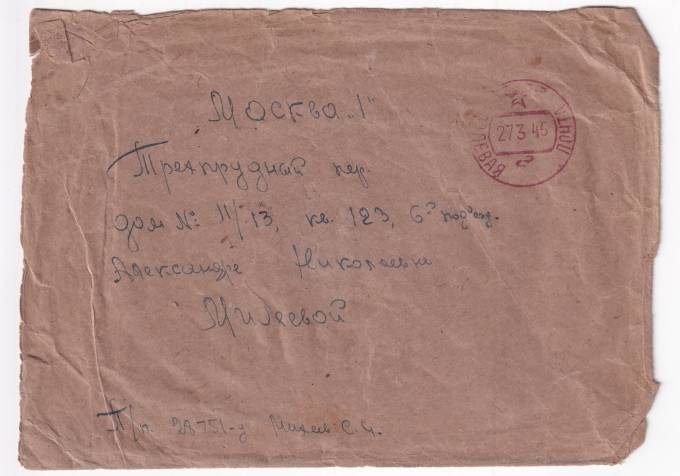 Москва „1"
ПОЛЕВАЯ ПОЧТА
27 3 45
г
Трехпрудный пер.
дом № 11/13, кв. 123, 6й подъезд.
Александре Николаевне
Милеевой
П/п. 28751-у С.